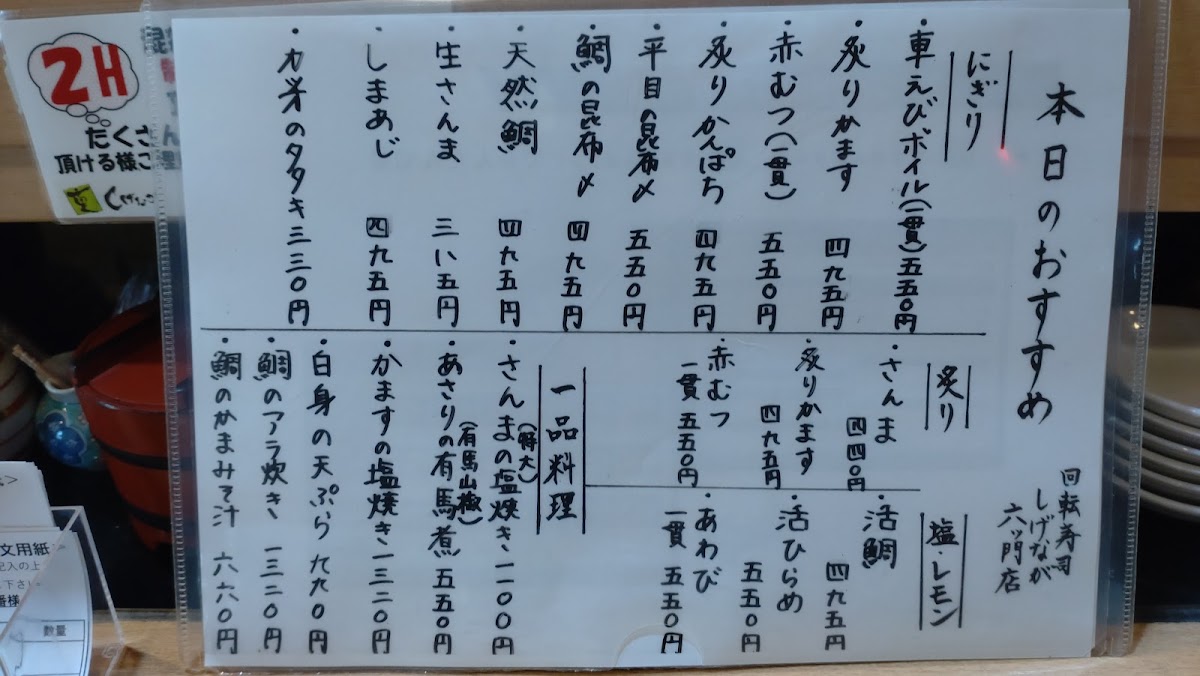 本日のおすすめ
回転寿司
しげなが
六ッ門店
にぎり
・車えびボイル(一貫)五五〇円
・炙りかます 四九五円
・赤むつ(一貫) 五五〇円
・炙りかんぱち 四九五円
・平目の昆布〆 五五〇円
・鯛の昆布〆 四九五円
・天然鯛 四九五円
・生さんま 三八五円
・しまあじ 四九五円
・カツオのタタキ 三三〇円
炙り
・さんま 四四〇円
・炙りかます 四九五円
・赤むつ
一貫 五五〇円
塩・レモン
・活鯛 四九五円
・活ひらめ 五五〇円
・あわび
一貫 五五〇円
一品料理
・さんまの塩焼き 一一〇〇円
(特大)
・あさりの有馬煮 五五〇円
(有馬山椒)
・かますの塩焼き 一三二〇円
・白身の天ぷら 九九〇円
・鯛のアラ炊き 一三二〇円
・鯛のかまみそ汁 六六〇円
2H
たくさん
頂ける様ご
文用紙
記入の上
下さい
番様
数量